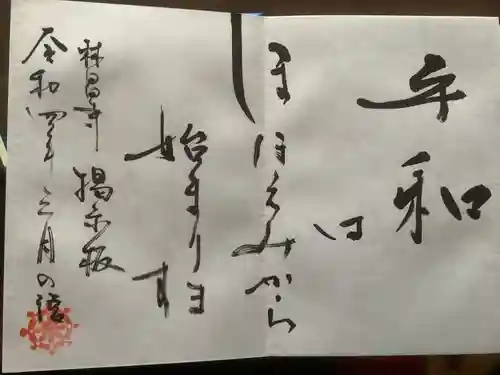 平和
は
ほほえみから
始まります
林昌寺 掲示板
令和四年 三月の語